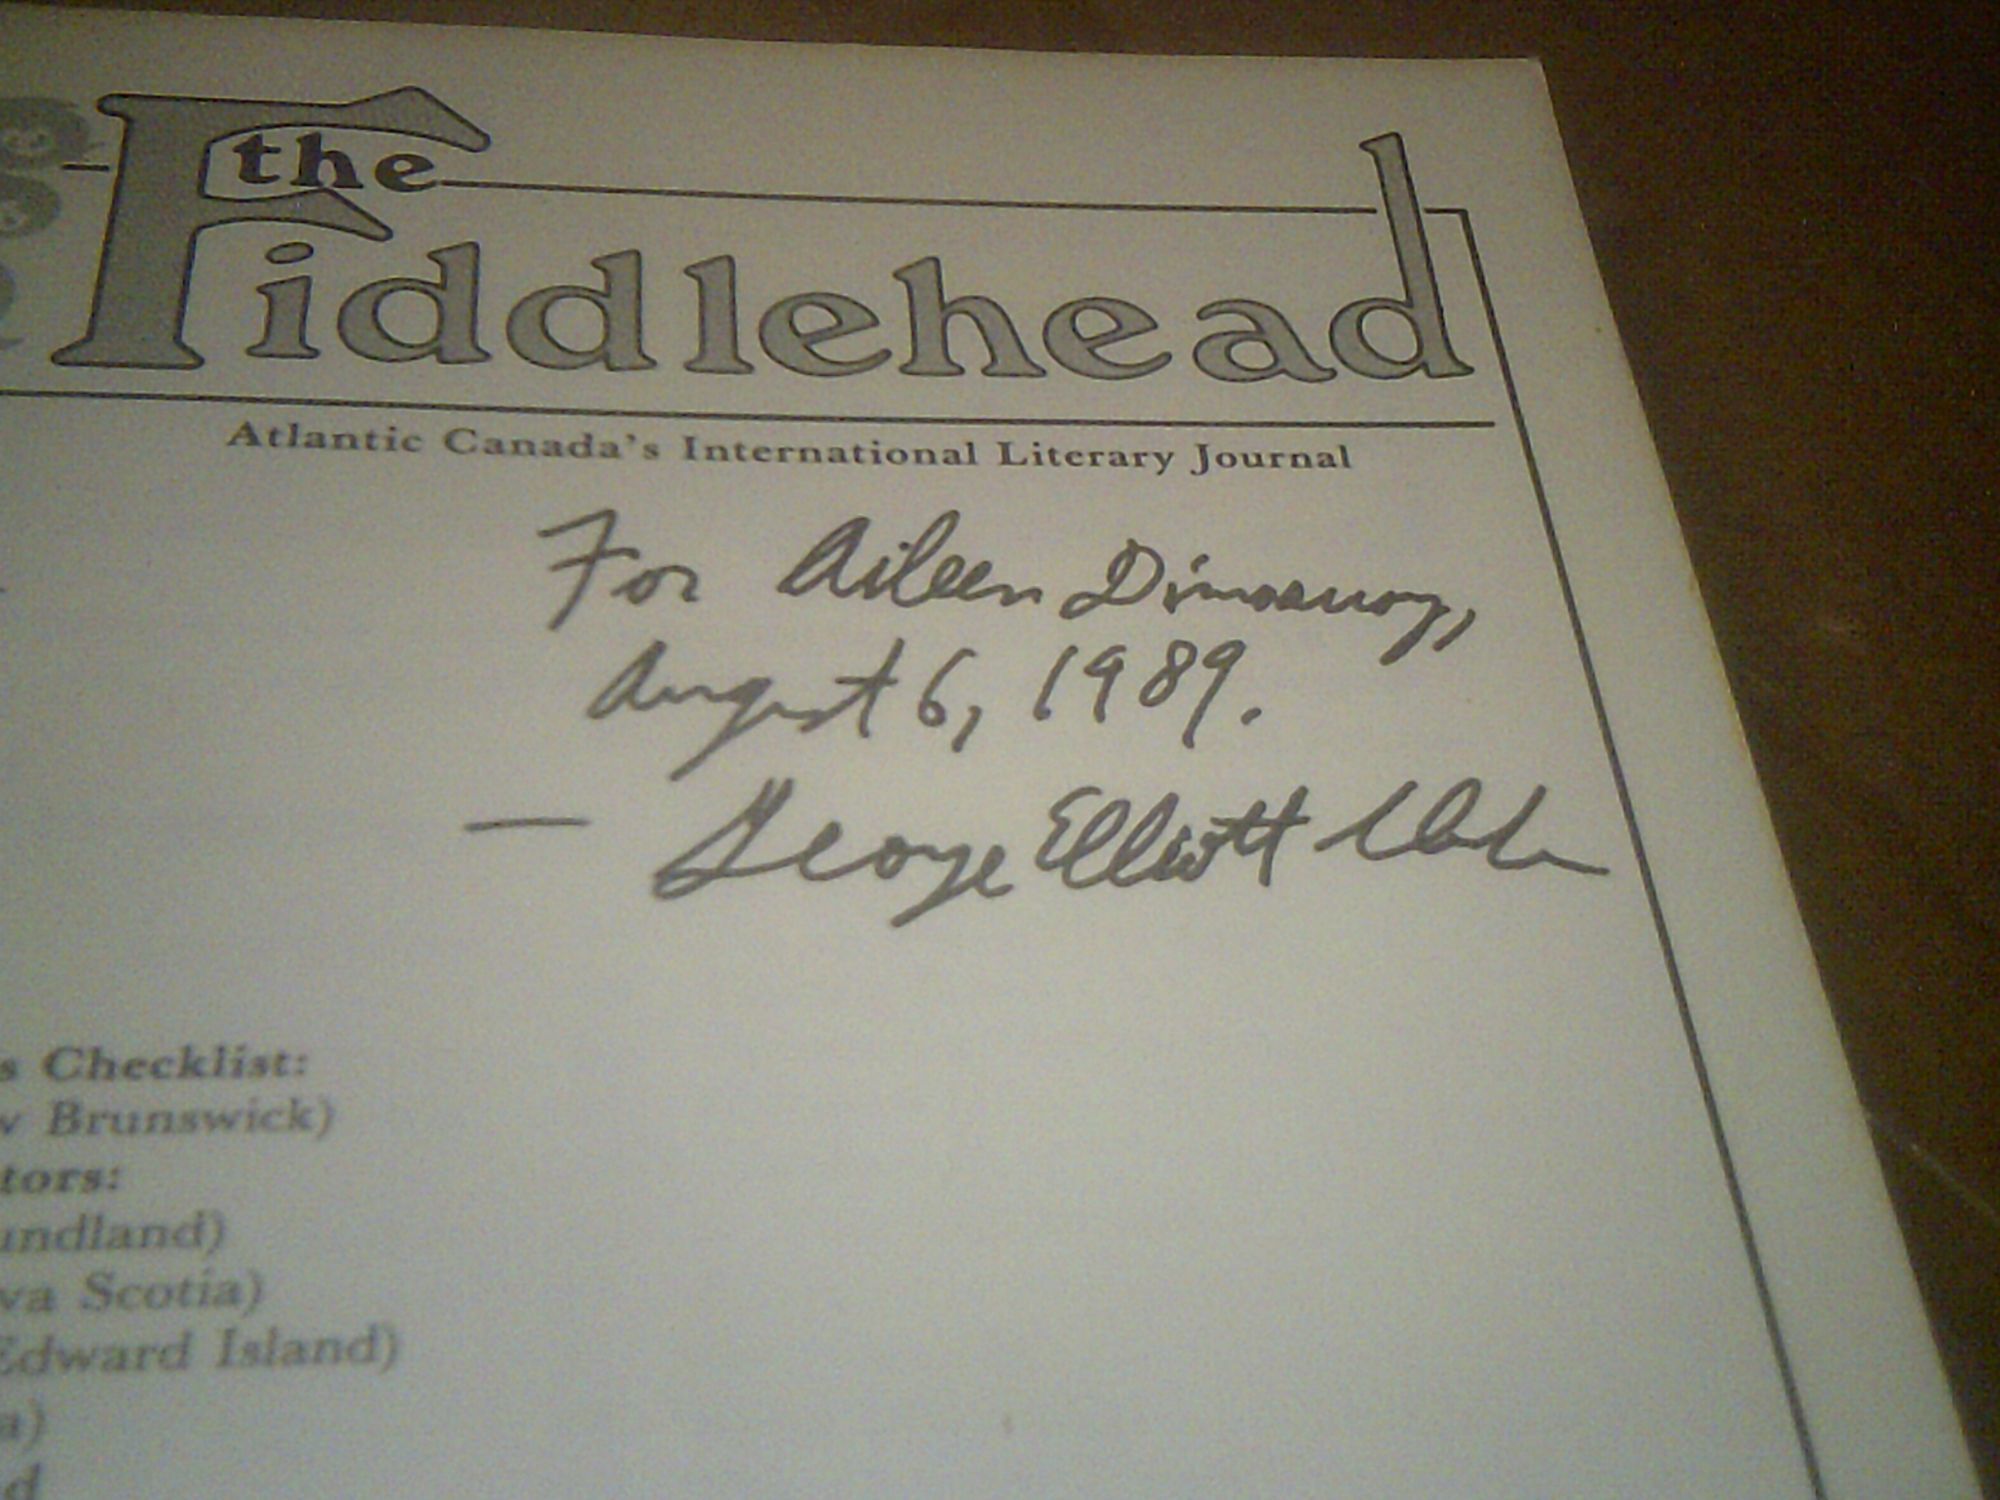 the
Fiddlehead
Atlantic Canada's International Literary Journal
For Aileen
August 6, 1989.
— George Elliott
s Checklist:
w Brunswick)
tors:
undland)
va Scotia)
Edward Island)
a)
d